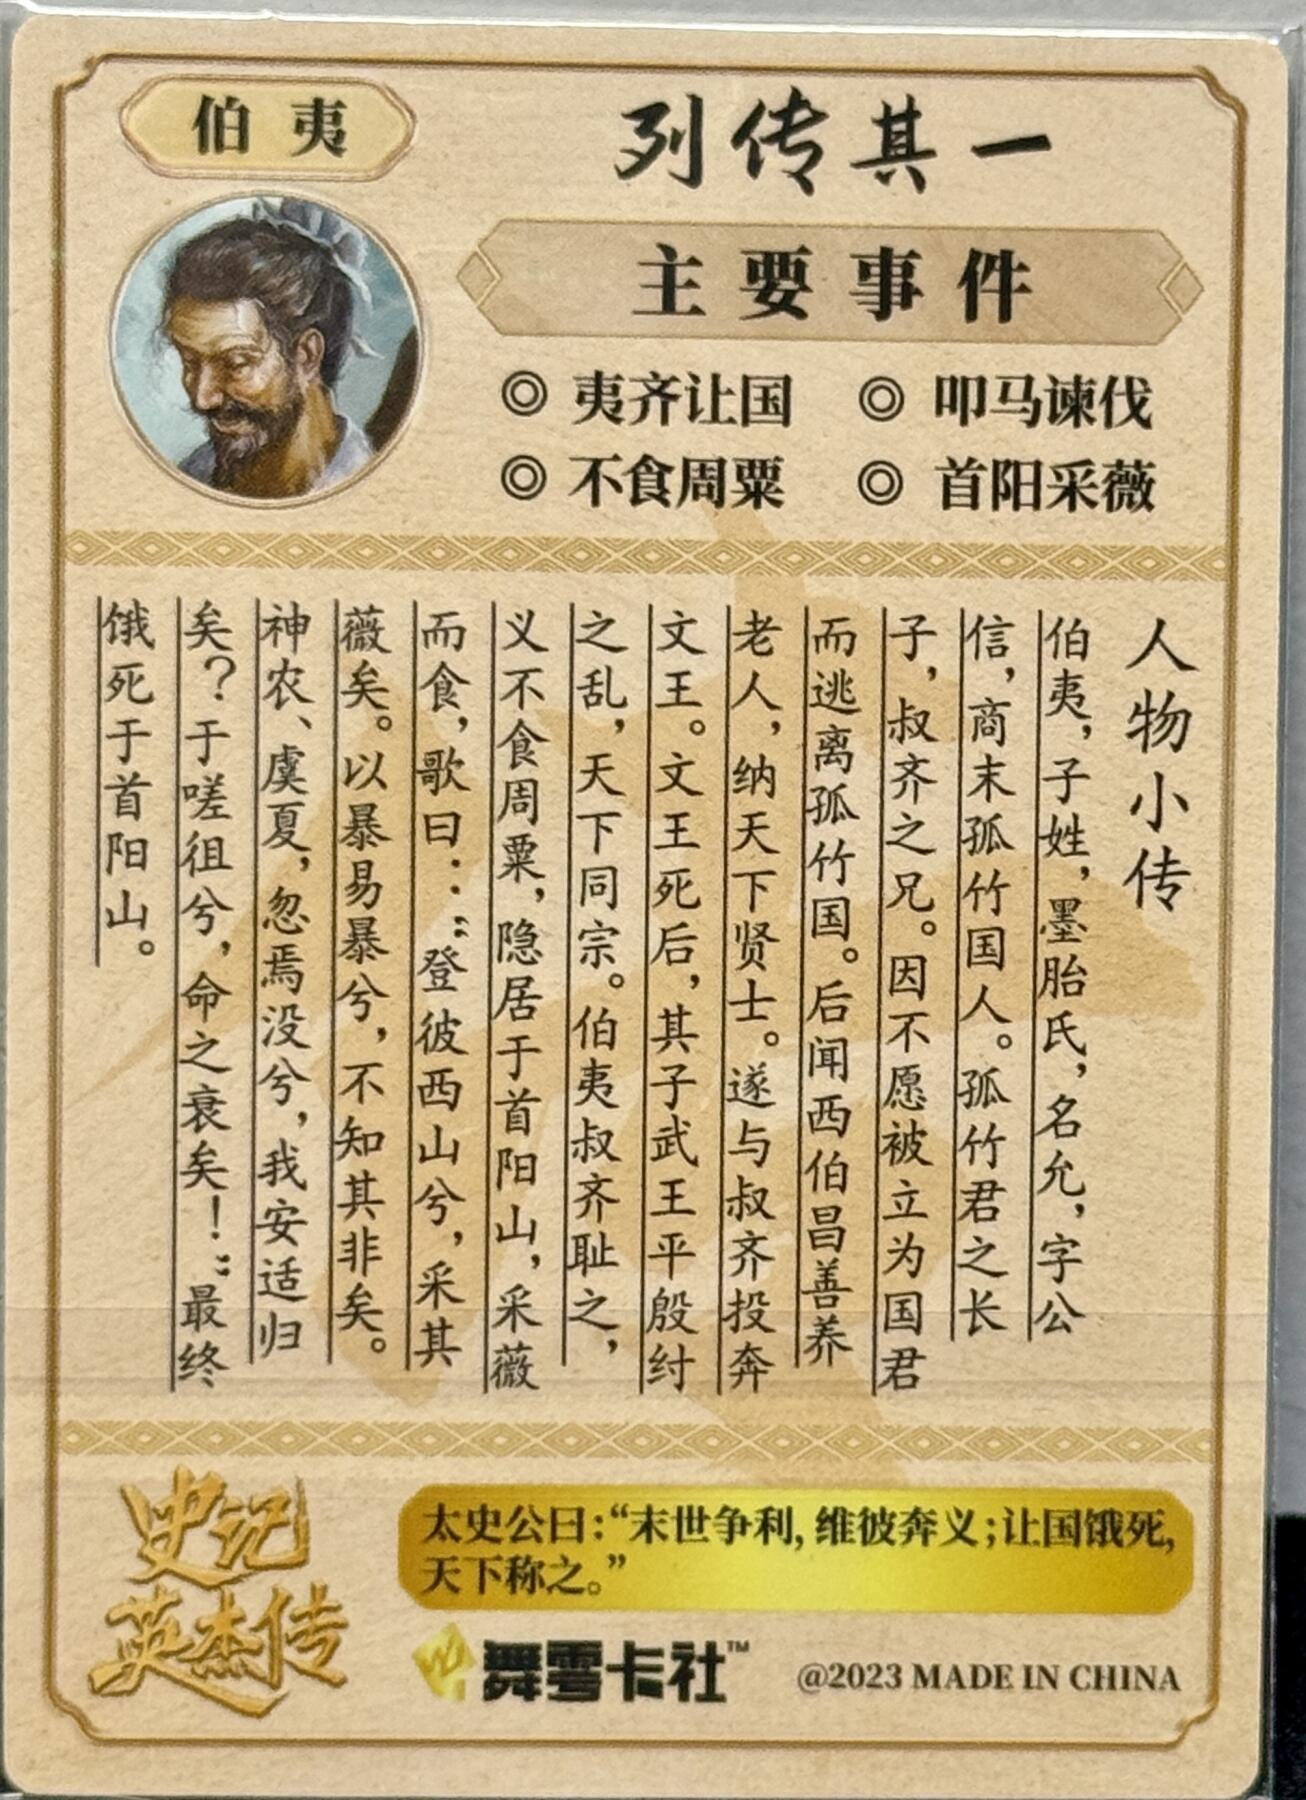 伯夷
列传其一
主要事件
◎ 夷齐让国 ◎ 叩马谏伐
◎ 不食周粟 ◎ 首阳采薇
人物小传
伯夷，子姓，墨胎氏，名允，字公
信，商末孤竹国人。孤竹君之长
子，叔齐之兄。因不愿被立为国君
而逃离孤竹国。后闻西伯昌善养
老人，纳天下贤士。遂与叔齐投奔
文王。文王死后，其子武王平殷纣
之乱，天下同宗。伯夷叔齐耻之，
义不食周粟，隐居于首阳山，采薇
而食，歌曰：“登彼西山兮，采其
薇矣。以暴易暴兮，不知其非矣。
神农、虞夏，忽焉没兮，我安适归
矣？于嗟徂兮，命之衰矣！”最终
饿死于首阳山。
史记
英杰传
太史公曰：“末世争利，维彼奔义；让国饿死，
天下称之。”
舞雩卡社™
@2023 MADE IN CHINA